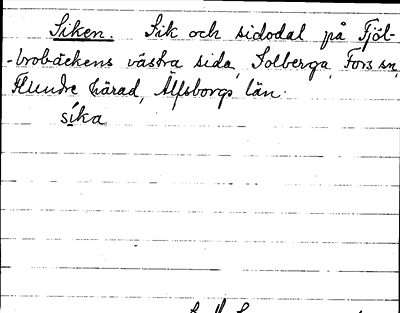 Siken. Sik och sidodal på Tjöl-
-brobäckens västra sida, Solberga, Fors sn,
Flundre härad, Älfsborgs län.
síka